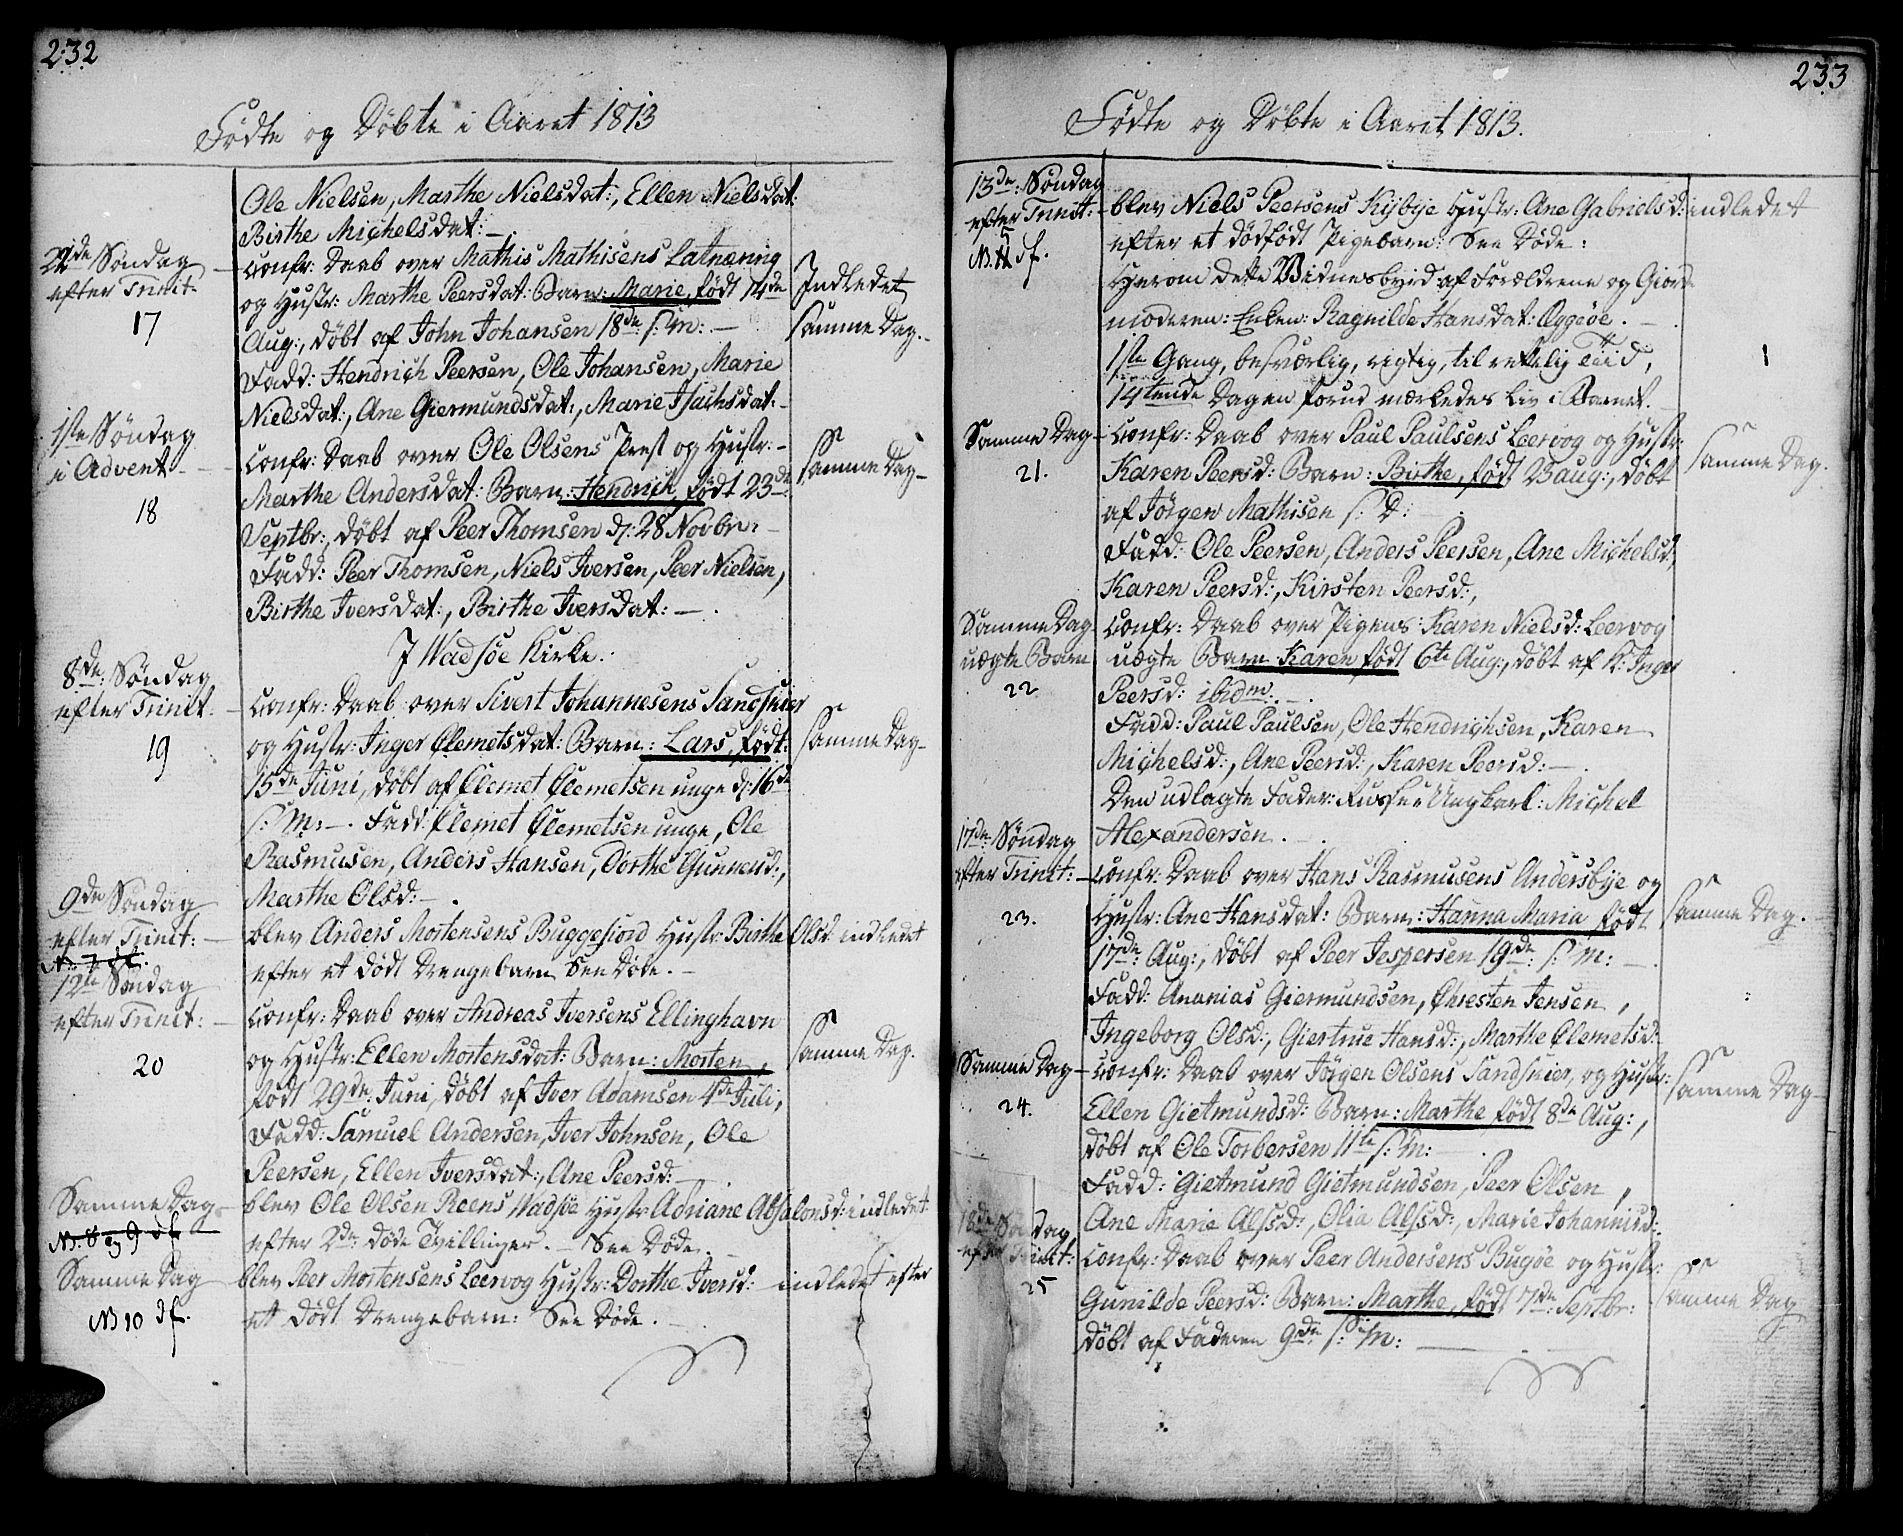 232
Fødte og Døbte i Aaret 1813
Ole Nielsen, Marthe Nielsdat:, Ellen Nielsdat:
Birthe Michelsdat: —
22de Søndag — confr: Daab over Mathis Mathisens Latnæring
efter Trinit: og Hustr: Marthe Peersdat: Barn: Marie, født 14de Indledet
17 Aug:, døbt af John Johansen 18de s: m: — samme Dag. -
Fadd: Hendrich Peersen, Ole Johansen, Marie
Nielsdat:, Ane Giermundsdat:, Marie Isachsdat: -
1ste Søndag confr: Daab over Ole Olsens Prest og Hustr: -
i Advent - Marthe Andersdat: Barn: Hendrich, født 23de samme Dag -
18 Septbr:, døbt af Peer Thomsen d: 28 Novbr: -
Fadd: Peer Thomsen, Niels Iversen, Peer Nielsen,
Birthe Iversdat:, Birthe Iversdat: — .
I Wadsøe Kirke:
8de: Søndag
efter Trinit: — confr: Daab over Sivert Johannesens Sandskier
19 og Hustr: Inger Clemetsdat: Barn: Lars, født: samme Dag -
15de Juni, døbt af Clemet Clemetsen unge d: 16de
s: m: — . Fadd: Clemet Clemetsen unge, Ole
Rasmusen, Anders Hansen, Dorthe Gunnersd:,
Marthe Olsd: — .
9de Søndag
efter Trinit: — blev Anders Mortensens Buggefiord Hustr: Birthe Olsd: indledet
efter et dødt Drengebarn See Døde. -
12te Søndag
efter Trinit: — confr: Daab over Andreas Iversens Ellinghavn
20 og Hustr: Ellen Mortensdat: Barn: Morten, samme Dag.
født 29de Juni, døbt af Iver Adamsen 4de Juli,
Fadd: Samuel Andersen, Iver Johnsen, Ole
Peersen, Ellen Iversdat:, Ane Peersd: —
Samme Dag - blev Ole Olsen Reens Wadsøe Hustr: Adriane Absalonsd: indledet
N. 8 og 9 df efter 2de døde Tvillinger. — See Døde. -
Samme Dag — blev Peer Mortensens Leervog Hustr: Dorthe Iversd: indledet efter
N 10 df. et dødt Drengebarn: See Døde. —
233
Fødte og Døbte i Aaret 1813.
13de: Søndag
efter Trinit: — blev Niels Peersens Kijbije Hustr: Ane Gabrielsd: indledet
N. 5 df. efter et dødfødt Pigebarn: See Døde:
Herom dette Vidnesbyrd af Forældrene og Giord-
moderen: Enken: Ragnilde Hansdat: Eggøe. —
1ste Gang, besværlig, rigtig, til rettelig Tiid, 1
14tende Dagen forud mærkedes Liv i Barnet. —
Samme Dag — confr: Daab over Paul Paulsens Leervog og Hustr:
21. Karen Peersd: Barn: Birthe, født 23 aug:, døbt samme Dag.
af Jørgen Mathisen s: D:
Fadd: Ole Peersen, Anders Peersen, Ane Michelsd:,
Karen Peersd:, Kirsten Peersd:,
Samme Dag — confr: Daab over Pigens: Karen Nielsd: Leervog
uægte Barn uægte Barn Karen født 6te Aug:, døbt af K: Inger
22 Peersd: ibidm: — .
Fadd: Paul Paulsen, Ole Hendrichsen, Karen
Michelsd:, Ane Peersd:, Karen Peersd: — .
Den udlagte Fader: Russer Ungkarl: Michel
Alexandersen. — .
17de Søndag
efter Trinit: — confr: Daab over Hans Rasmusens Andersbije og
23. Hustr: Ane Hansdat: Barn: Hanna Maria født samme Dag.
17de: Aug:, døbt af Peer Jespersen 19de: s: m: — .
Fadd: Ananias Giermundsen, Chresten Jensen,
Ingeborg Olsd:, Giertrue Hansd:, Marthe Clemetsd:
Samme Dag — confr: Daab over Jørgen Olsens Sandskier, og Hustr:
24. Ellen Gietmundsd: Barn: Marthe født 8de Aug:, samme Dag —
døbt af Ole Torbersen 11te s: m: —
Fadd: Gietmund Gietmundsen, Peer Olsen,
Ane Marie Alfsd:, Olia Alfsd:, Marie Johannisd:
18de Søndag
efter Trinit: confr: Daab over Peer Andersens Bugøe og Hustr:
25 Gunilde Peersd: Barn: Marthe, født 7de: Septbr: samme Dag
døbt af Faderen 9de s: m: —